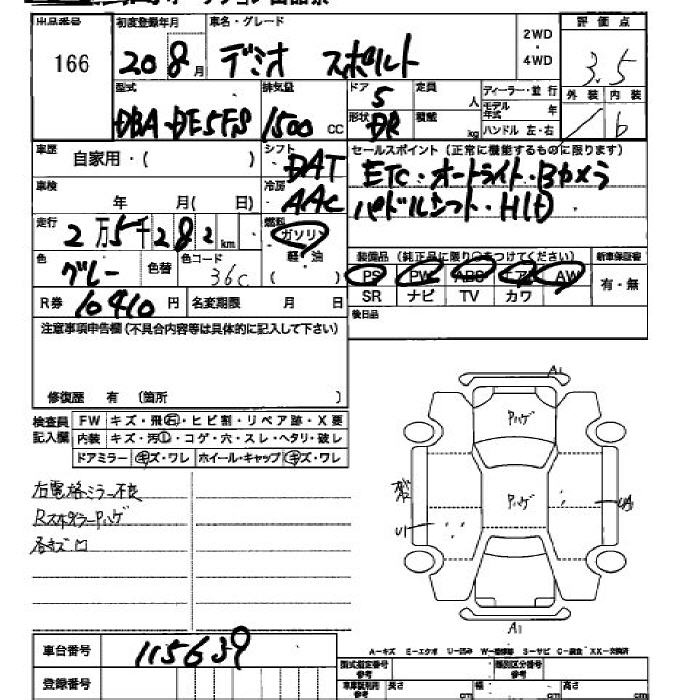 出品番号
166
初度登録年月
20 8月
車名・グレード
デミオ スポルト
2WD
・
4WD
評価点
3.5
外装 内装
/ b
型式
DBA-DE5FS
排気量
1500 CC
ドア
5
形状
DR
定員
人
積載
kg
ディーラー・並行
モデル年式 年
ハンドル 左・右
車歴
自家用・( )
シフト
DAT
セールスポイント(正常に機能するものに限ります)
ETC・オートライト・Bカメラ
パドルシフト・HID
車検
年 月( 日)
冷房
AAC
走行
2万5千282km
燃料
ガソリン
軽・油
( )
色
グレー
色替
色コード
36C
装備品(純正品に限り○をつけてください)
PS PW ABS エアB AW
SR ナビ TV カワ
新車保証書
有・無
R券 10410円
名変期限 月 日
後日品
注意事項申告欄(不具合内容等は具体的に記入して下さい)
修復歴 有 (箇所 )
検査員記入欄
FW キズ・飛石・ヒビ割・リペア跡・X要
内装 キズ・汚れ・コゲ・穴・スレ・ヘタリ・破レ
ドアミラー キズ・ワレ ホイール・キャップ キズ・ワレ
右電格ミラー不良
Rスポイラー Pハゲ
各キズ凹
A1
Pハゲ
Pハゲ
U1
A1
A-キズ E-エクボ U-凹み W-補修跡 S-サビ C-腐食 XX-交換済
車台番号
115639
登録番号
型式指定番号
参考
類別区分番号
参考
車庫証明用
参考
長さ cm
幅 cm
高さ cm